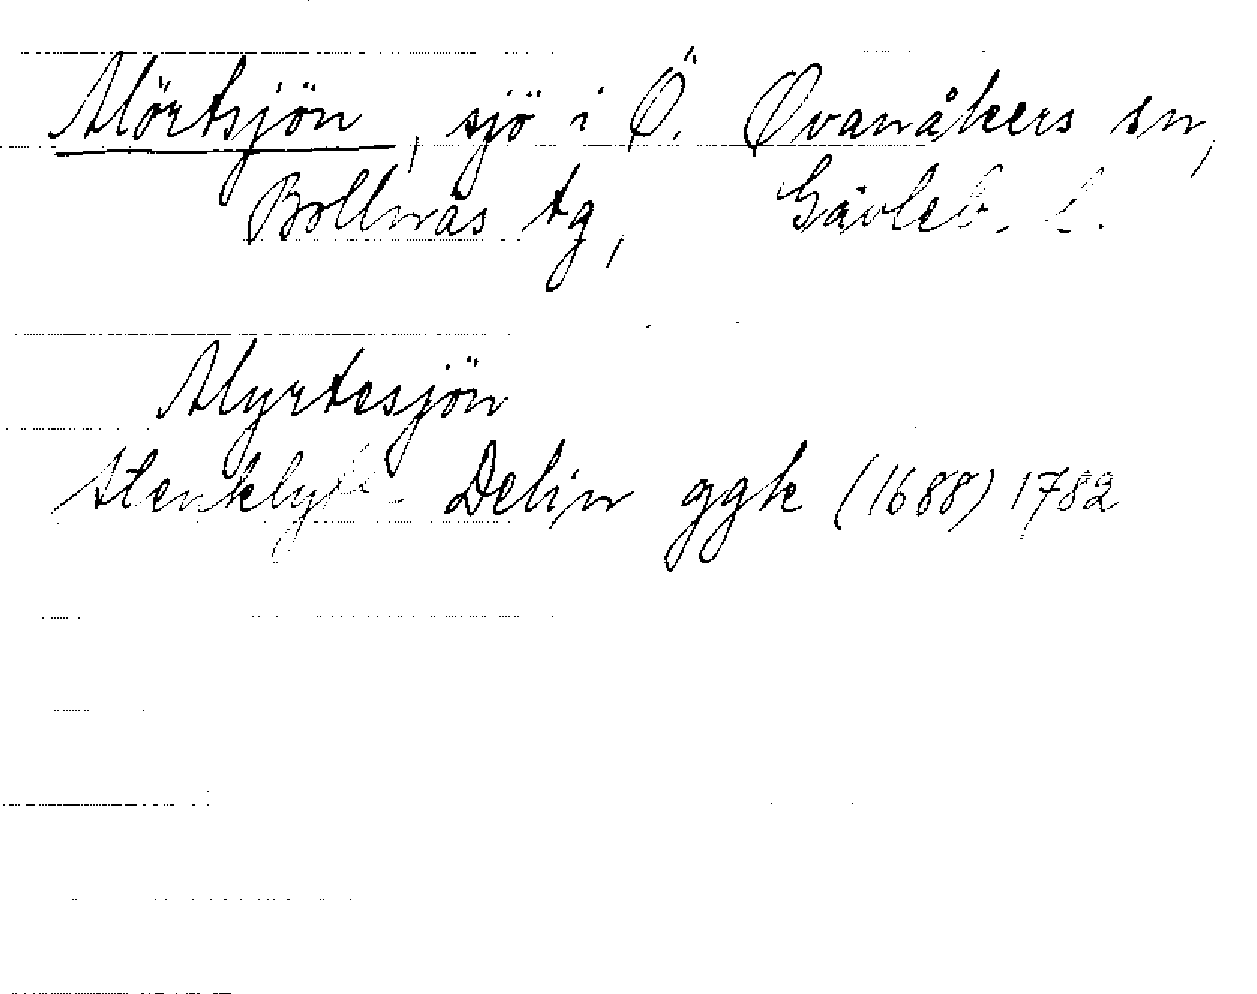 Mörtsjön, sjö i Ö. Ovanåkers sn,
Bollnäs tg, Gävleb. l.
Myrtesjön
Stenklyft- Delin ggk (1688) 1782